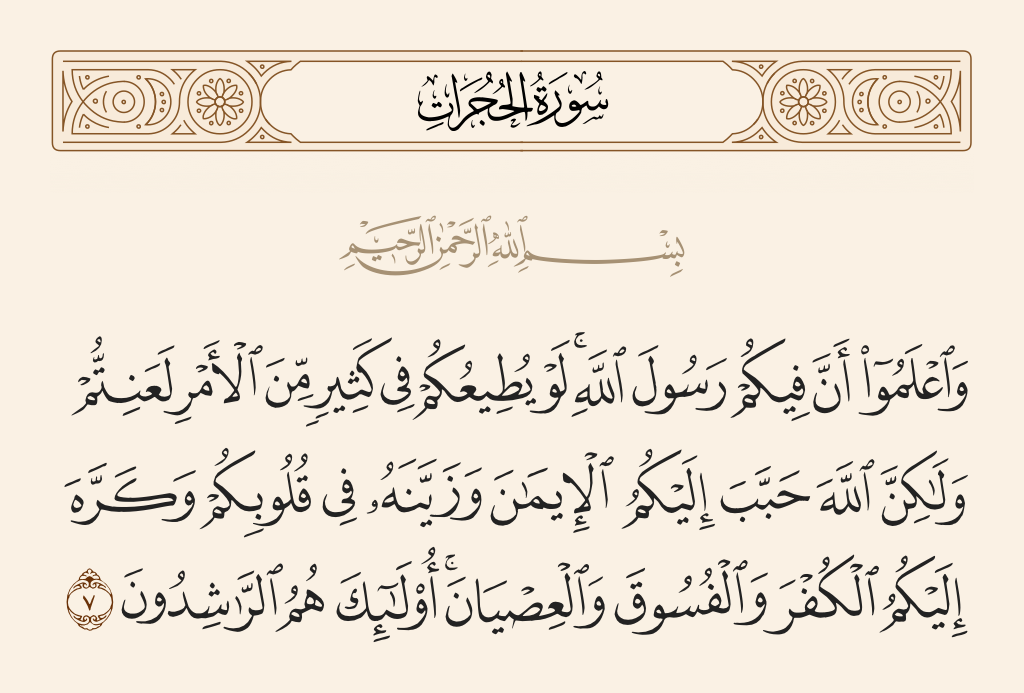 سُورَةُ الحُجُرَاتِ
بِسْمِ ٱللَّهِ ٱلرَّحْمَٰنِ ٱلرَّحِيمِ
وَٱعْلَمُوٓا۟ أَنَّ فِيكُمْ رَسُولَ ٱللَّهِ ۚ لَوْ يُطِيعُكُمْ فِى كَثِيرٍ مِّنَ ٱلْأَمْرِ لَعَنِتُّمْ
وَلَٰكِنَّ ٱللَّهَ حَبَّبَ إِلَيْكُمُ ٱلْإِيمَٰنَ وَزَيَّنَهُۥ فِى قُلُوبِكُمْ وَكَرَّهَ
إِلَيْكُمُ ٱلْكُفْرَ وَٱلْفُسُوقَ وَٱلْعِصْيَانَ ۚ أُو۟لَٰٓئِكَ هُمُ ٱلرَّٰشِدُونَ ٧